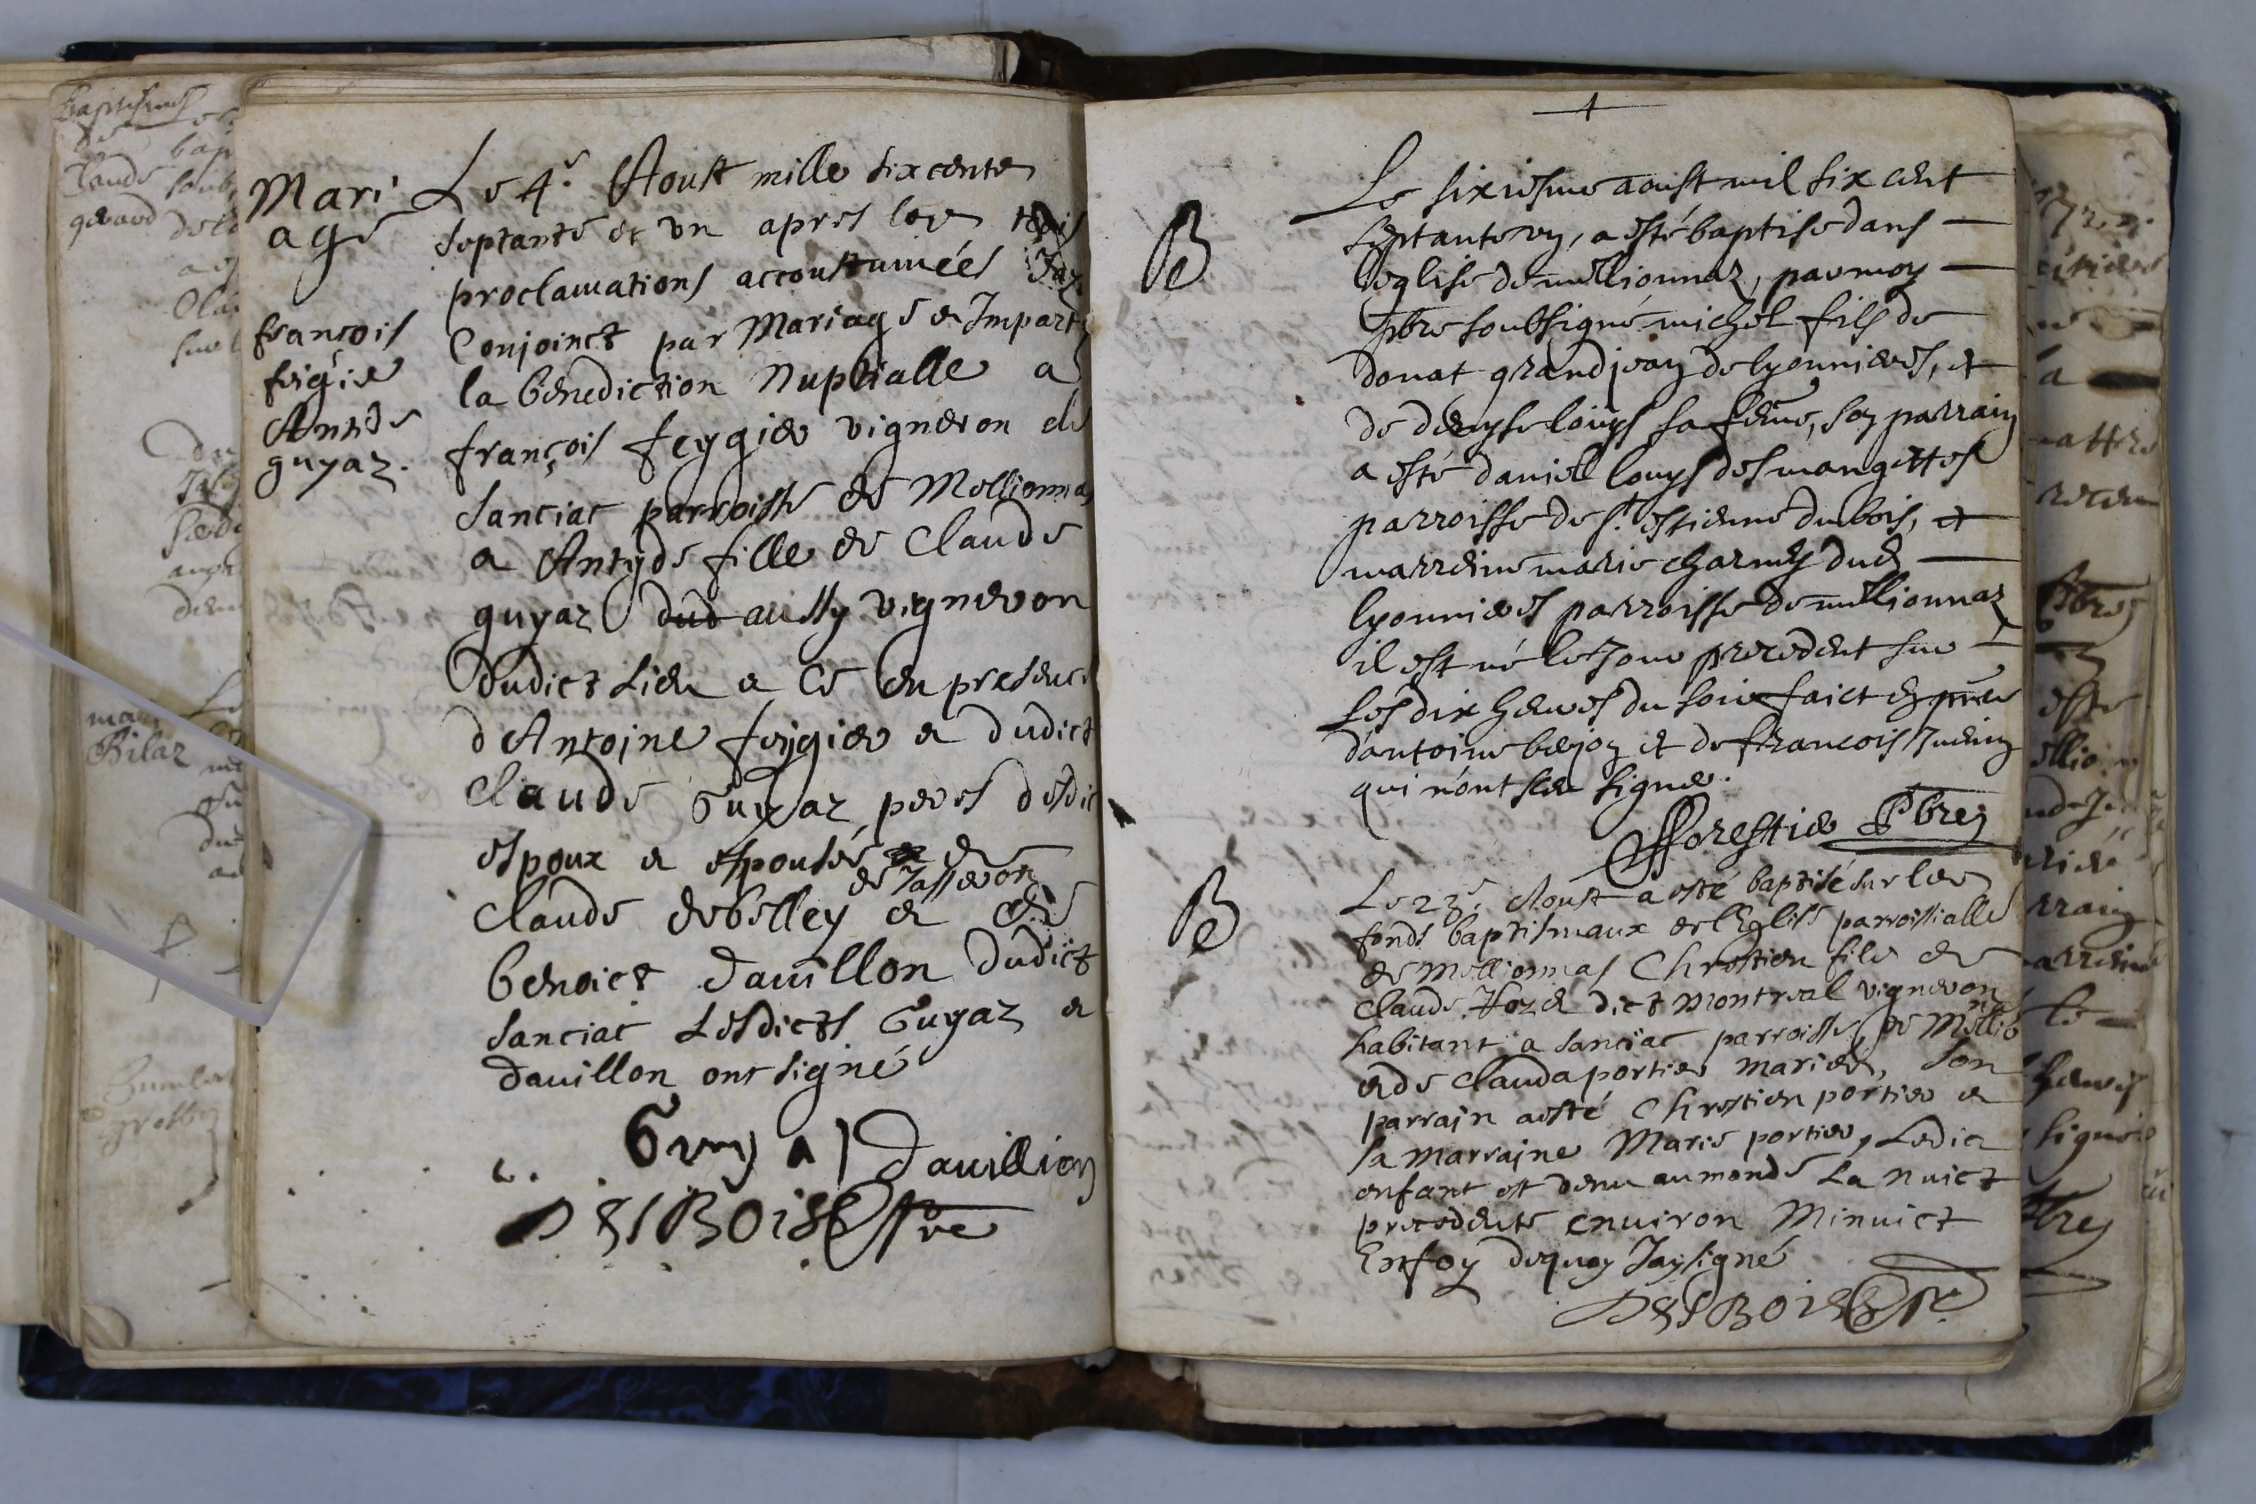 Mari
age
françois
feigier
Antide
guyaz.
Le 4.e Aoust mille sixcents
septante et un apres les trois
proclamations accoustumées Jay
Conjoinct par Mariage et Imparty
la benediction Nuptialle a
françois feygier vigneron de
sanciac parroisse de Mellionnas
a Antyde fille de Claude
guyaz dud aussy vigneron
dudict lieu a ce en presence
d'Antoine feygier et dudict
Claude Guyaz peres desdict
espoux et espousée et de
de Jasseron
Claude debelley et de
benoict dauillon dudict
sanciac Lesdicts Guyaz et
dauillon ont signé
Guyaz Dauillion
DESBOIS Pbre
B
Le sixiesme aoust mil six cent
septante vn, a esté baptise dans
l'eglise de meillionnaz, par moy
pbre soubsigné michel fils de
donat grandjean de lyonnieres, et
de denyse louys sa feme, son parrain
a esté daniel louys des mangettes
parroisse de st. estienne du bois, et
marreine marie charney dud
lyonnieres parroisse de meillionnaz
il est né le Jour precedent sur
les dix heures du soir faict en pnce
d'antoine bejon et de francois Juenin
qui n'ont sceu signer.
fforestier Pbre
B
Le 23.e Aoust a esté baptisé sur les
fonds baptismaux de l'Eglise parroissialle
de Mellionnas Chrestien fils de
Claude dict Montreal vigneron
habitant a sanciac parroisse de Mellio
nas
et de Clauda portier mariés, son
parrain a esté Chrestien portier et
sa marraine Marie portier, Ledict
enfant est venu au monde La nuict
precedente enuiron Minuict
En foy dequoy Jay signé
DESBOIS Pbre